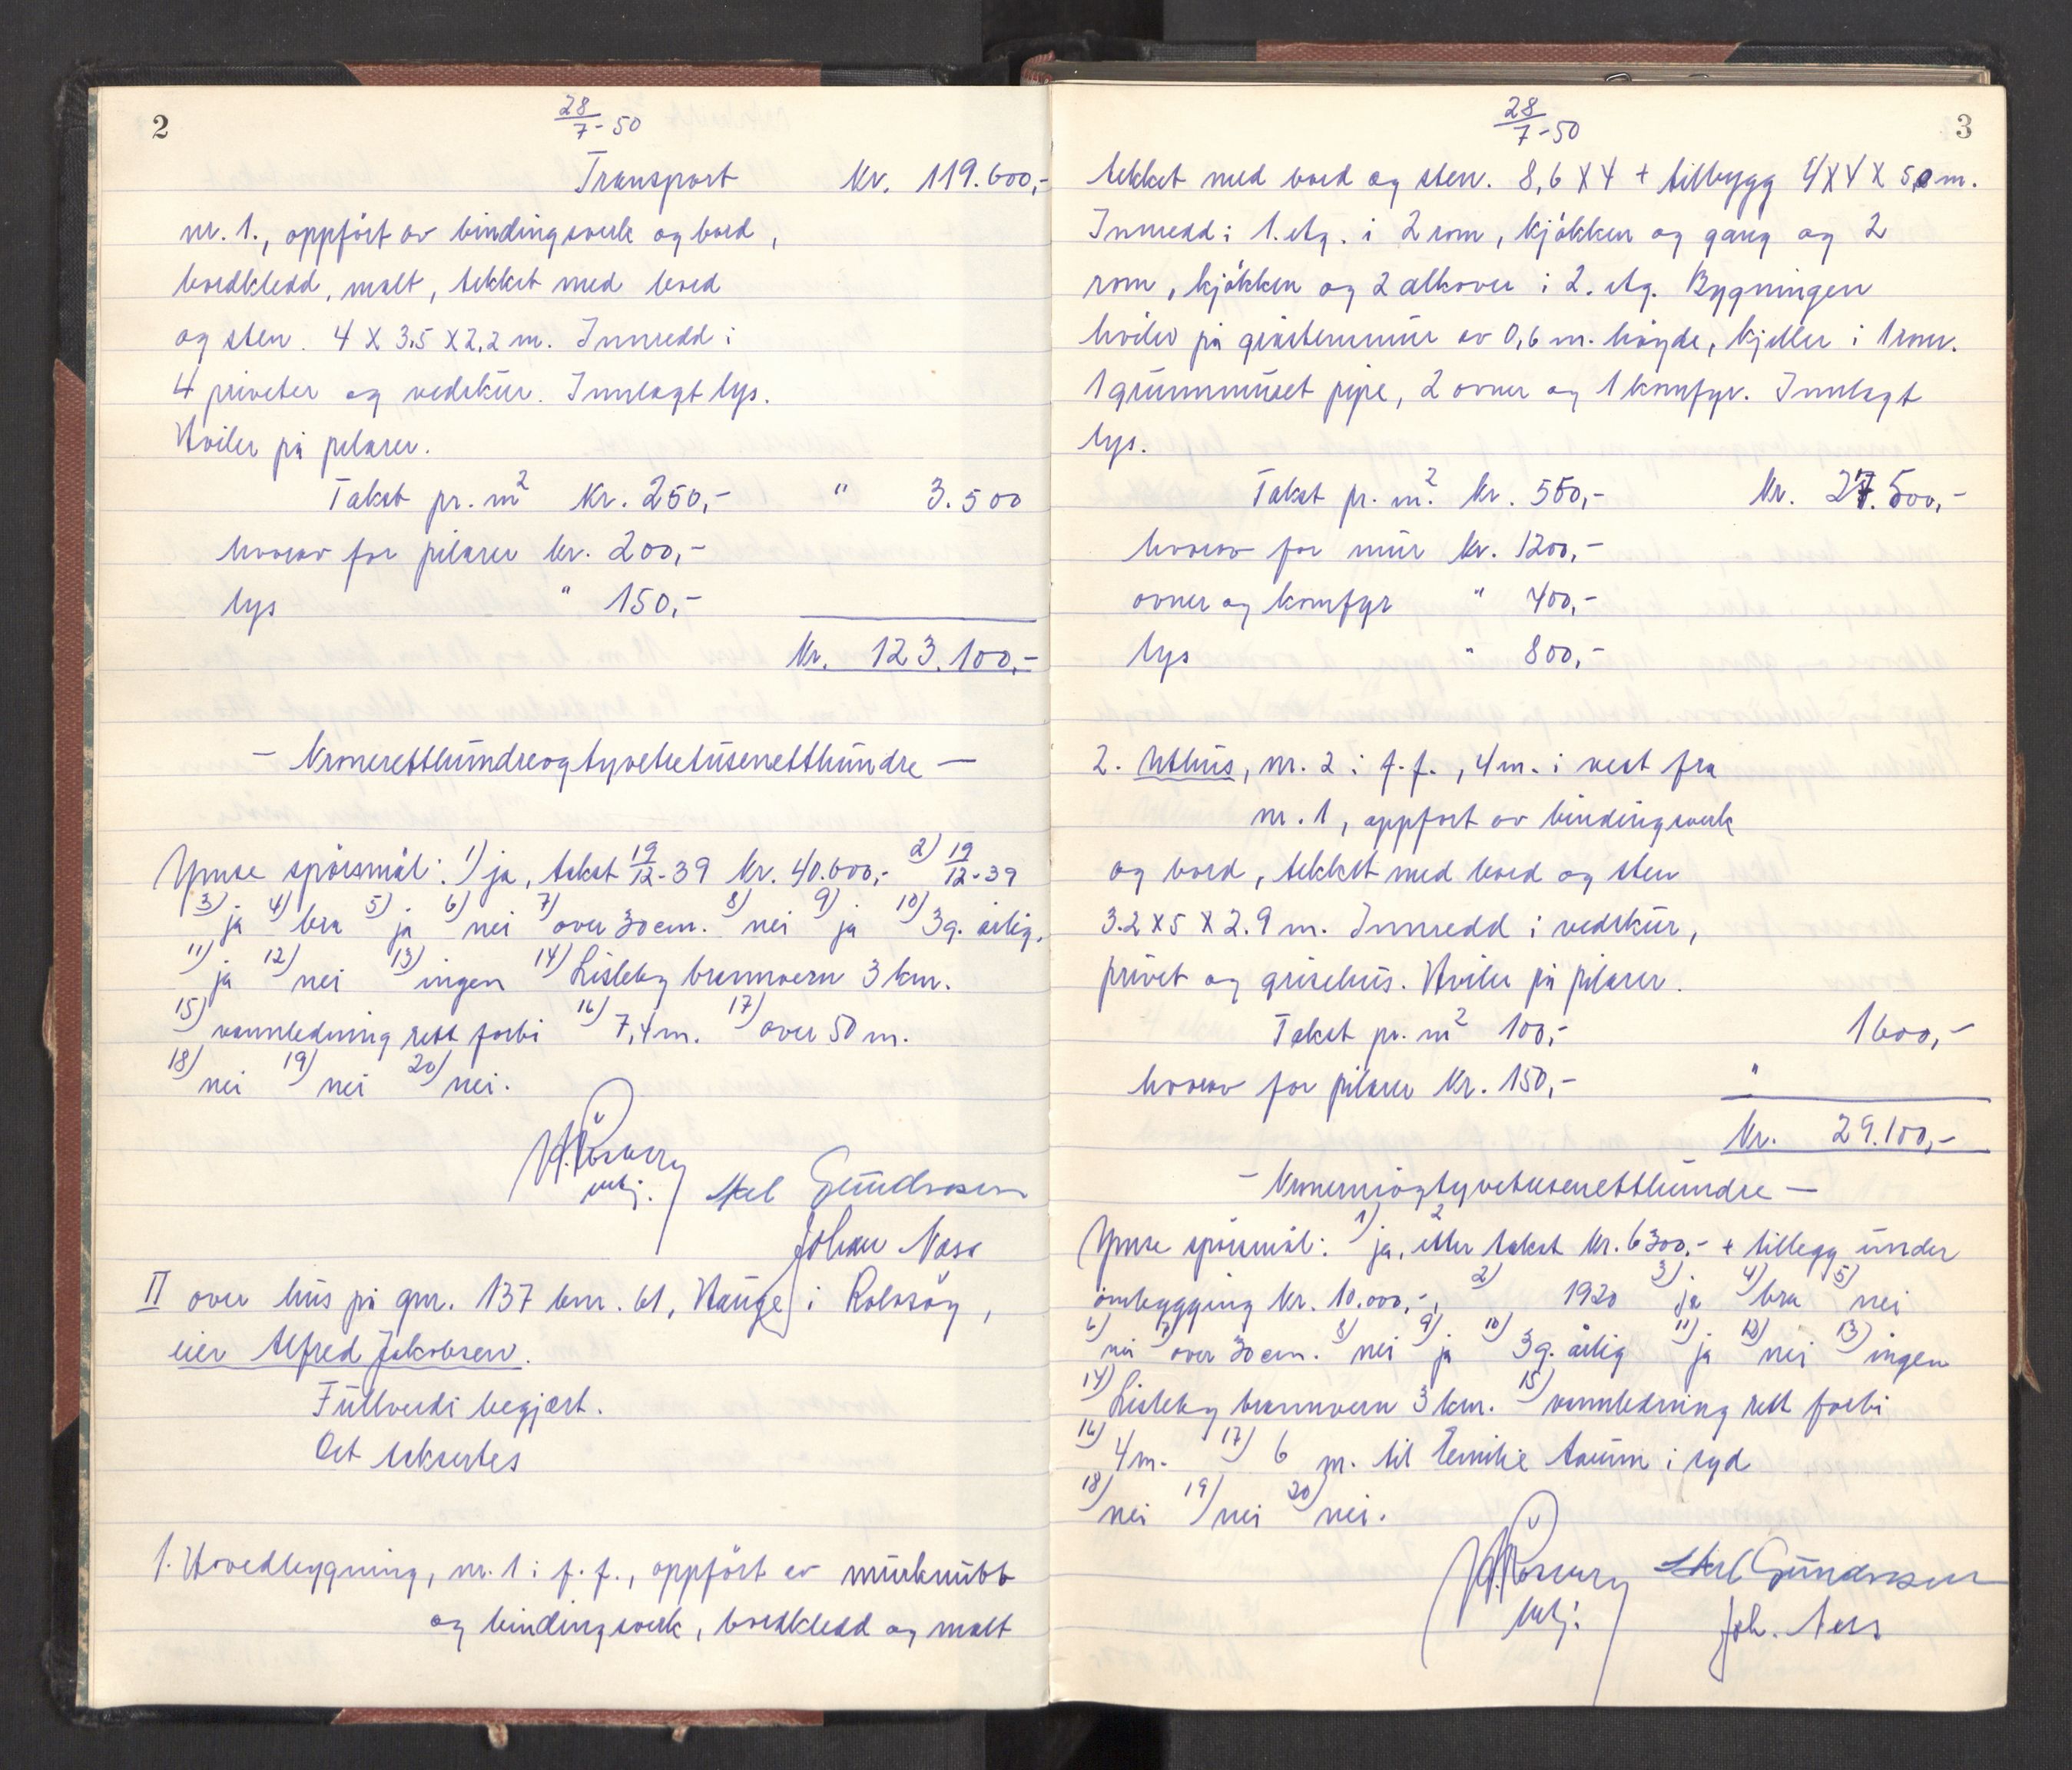 2
28/7-50
Transport Kr. 119.600,-
nr. 1., oppført av bindingsverk og bord,
bordkledd, malt, tekket med bord
og sten. 4 X 3,5 X 2,2 m. Innredd i
4 priveter og vedskur. Innlagt lys.
Hviler på pilarer.
Takst pr. m² Kr. 250,- " 3.500
hvorav for pilarer kr. 200,-
lys " 150,-
Kr. 123.100,-
- Kronereitthundreogtyvetretusenetthundre -
Ymse spörsmål: 1) ja, takst 19/12-39 Kr. 40.600,- 2) 19/12-39
3) ja 4) bra 5) ja 6) nei 7) over 30 cm. 8) nei 9) ja 10) 3 g. årlig.
11) ja 12) nei 13) ingen 14) Lisleby brannvern 3 km.
15) vannledning rett forbi 16) 7,4 m. 17) over 50 m.
18) nei 19) nei 20) nei.
Gundersen
Johan Næss
II over hus på gnr. 137 bnr. 61, Hauge i Rolvsöy,
eier Alfred Jakobsen.
Fullverdi begjært.
Det takseres
1. Hovedbygning, nr. 1 i f.f., oppfört av murknubb
og bindingsverk, bordkledd og malt
3
28/7-50
tekket med bord og sten. 8,6 X 4 + tilbygg 4 X 4 X 5,0 m.
Innredd i 1. etg. i 2 rom, kjökken og gang og 2
rom, kjökken og 2 alkover i 2. etg. Bygningen
hviler på gråstenmur av 0,6 m. höyde, kjeller i 1 rom.
1 grunnmuret pipe, 2 ovner og 1 komfyr. Innlagt
lys.
Takst pr. m². Kr. 550,- Kr. 27.500,-
hvorav for mur Kr. 1200,-
ovner og komfyr " 400,-
lys " 800,-
2. Uthus, nr. 2 i f.f., 4 m. i vest fra
nr. 1, oppfört av bindingsverk
og bord, tekket med bord og sten
3.2 X 5 X 2.9 m. Innredd i vedskur,
privet og grisehus. Hviler på pilarer.
Takst pr. m² 100,- 1600,-
hvorav for pilarer Kr. 150,- "
Kr. 29.100,-
- Kronerniogtyvetusenetthundre -
Ymse spörsmål: 1) ja, etter takst Kr. 6300,- + tillegg under
ombygging Kr. 10.000,-, 2) 1920 3) ja 4) bra 5) nei
6) nei 7) over 30 cm. 8) nei 9) ja 10) 3 g. årlig 11) ja 12) nei 13) ingen
14) Lisleby brannvern 3 km. 15) vannledning rett forbi
16) 4 m. 17) 6 m. til Emilie Aaum i syd
18) nei 19) nei 20) nei.
Gundersen
Joh. Næss